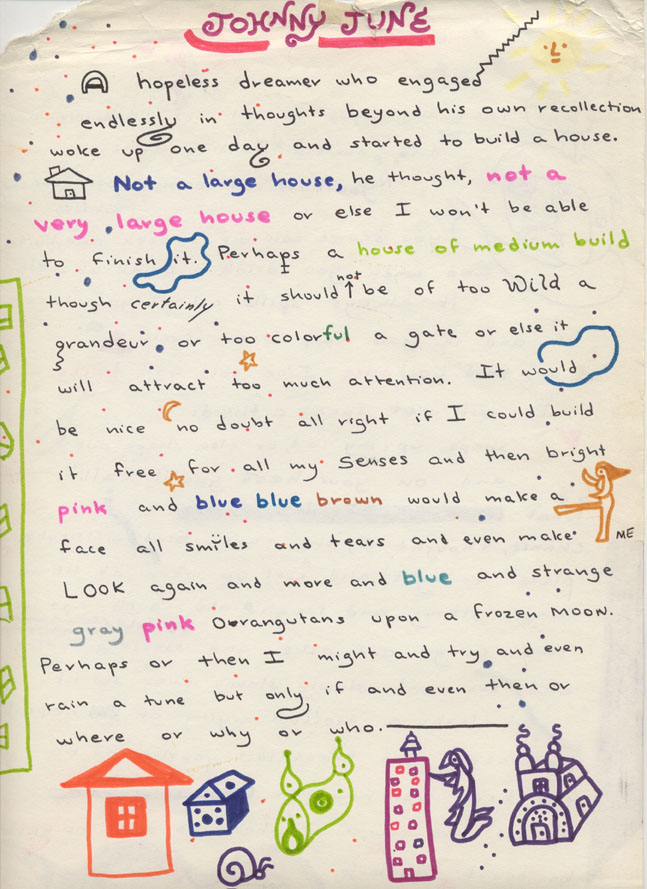 JOHNNY JUNE
A hopeless dreamer who engaged
endlessly in thoughts beyond his own recollection
woke up one day and started to build a house.
Not a large house, he thought, not a
very large house or else I won't be able
to finish it. Perhaps a house of medium build
not
though certainly it should be of too Wild a
grandeur or too colorful a gate or else it
will attract too much attention. It would
be nice no doubt all right if I could build
it free for all my senses and then bright
pink and blue blue brown would make a
face all smiles and tears and even make
ME
LOOK again and more and blue and strange
gray pink Oorangutans upon a frozen MOON.
Perhaps or then I might and try and even
rain a tune but only if and even then or
where or why or who.